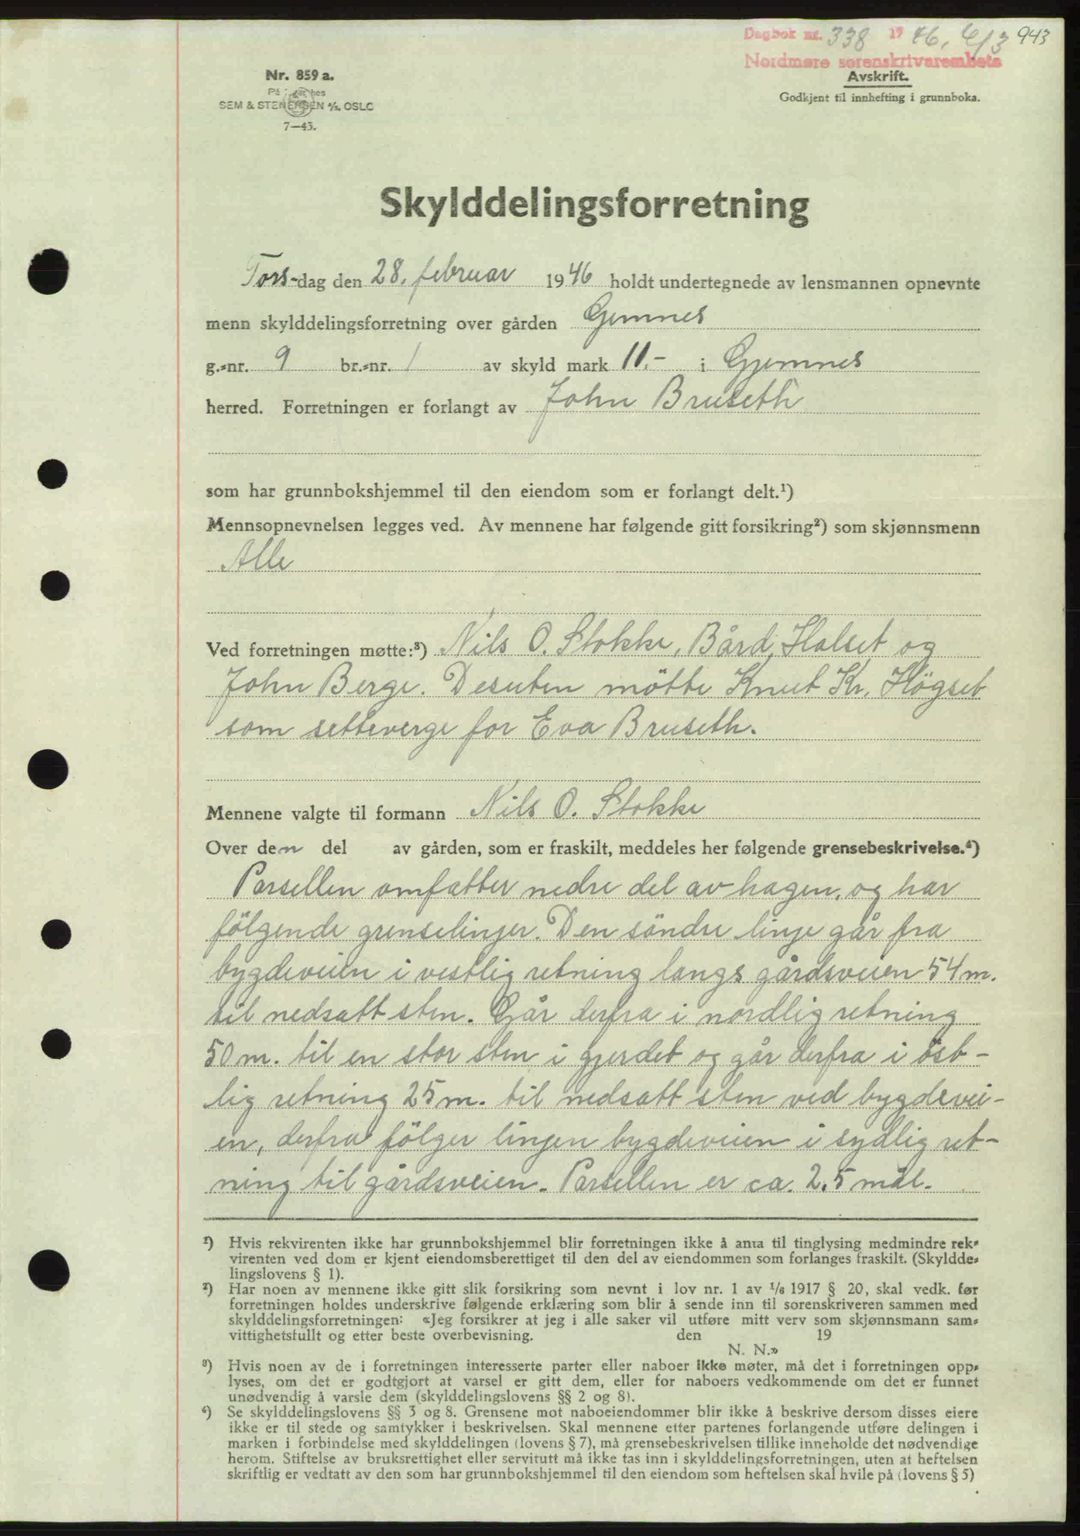 Dagbok nr. 338 1946, 6/3 943
Nordmøre sorenskrivarembete
Nr. 859 a.
Avskrift.
SEM & STENERSEN A/S. OSLO
Godkjent til innhefting i grunnboka.
7—43.
Skylddelingsforretning
Tors-dag den 28. februar 1946 holdt undertegnede av lensmannen opnevnte
menn skylddelingsforretning over gården Gjemnes
g.-nr. 9 br.-nr. 1 av skyld mark 11.- i Gjemnes
herred. Forretningen er forlangt av John Bruseth
som har grunnbokshjemmel til den eiendom som er forlangt delt.¹)
Mennsopnevnelsen legges ved. Av mennene har følgende gitt forsikring²) som skjønnsmenn
Alle
Ved forretningen møtte:³) Nils O. Stokke, Bård Halset og
John Berge. Desuten mötte Knut Kr. Högset
som setteverge for Eva Bruseth.
Mennene valgte til formann Nils O. Stokke
Over den del av gården, som er fraskilt, meddeles her følgende grensebeskrivelse.⁴)
Parsellen omfatter nedre del av hagen, og har
fölgende grenselinjer. Den söndre linje går fra
bygdeveien i vestlig retning langs gårdsveien 54 m.
til nedsatt sten. Går derfra i nordlig retning
50 m. til en stor sten i gjerdet og går derfra i öst-
lig retning 25 m. til nedsatt sten ved bygdevei-
en, derfra fölger linjen bygdeveien i sydlig ret-
ning til gårdsveien. Parsellen er ca. 2,5 mål.
¹) Hvis rekvirenten ikke har grunnbokshjemmel blir forretningen ikke å anta til tinglysing medmindre rek-
virenten ved dom er kjent eiendomsberettiget til den del av eiendommen som forlanges fraskilt. (Skyldde-
lingslovens § 1).
²) Har noen av mennene ikke gitt slik forsikring som nevnt i lov nr. 1 av 1/6 1917 § 20, skal vedk. før
forretningen holdes underskrive følgende erklæring som blir å sende inn til sorenskriveren sammen med
skylddelingsforretningen: «Jeg forsikrer at jeg i alle saker vil utføre mitt verv som skjønnsmann sam-
vittighetsfullt og etter beste overbevisning. den 19
N. N.»
³) Hvis noen av de i forretningen interesserte parter eller naboer ikke møter, må det i forretningen opp-
lyses, om det er godtgjort at varsel er gitt dem, eller for naboers vedkommende om det er funnet
unødvendig å varsle dem (skylddelingslovens §§ 2 og 8).
⁴) Se skylddelingslovens §§ 3 og 8. Grensene mot naboeiendommer blir ikke å beskrive dersom disses eiere
ikke er til stede og samtykker i beskrivelsen. Skal mennene etter partenes forlangende utføre delingen i
marken i forbindelse med skylddelingen (lovens § 7), må grensebeskrivelsen tillike inneholde det nødvendige
herom. Stiftelse av bruksrettighet eller servitutt må ikke tas inn i skylddelingsforretningen, uten at heftelsen
skriftlig er vedtatt av den som har grunnbokshjemmel til den eiendom som heftelsen skal hvile på (lovens § 5)